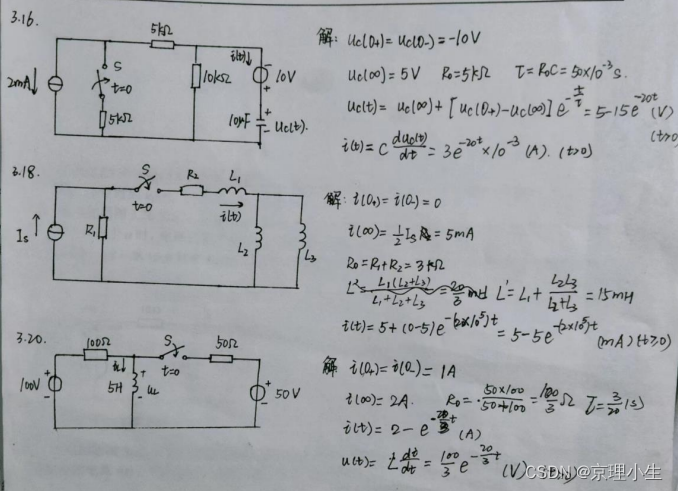 3.16.
5kΩ
i(t)
2mA
S
t=0
10kΩ
10V
5kΩ
10μF
Uc(t).
解: Uc(0+)=Uc(0-)=-10V
Uc(∞)=5V R0=5kΩ τ=R0C=50×10^-3 s.
Uc(t)=Uc(∞)+[Uc(0+)-Uc(∞)]e^-t/τ=5-15e^-20t (V)
(t>0)
i(t)=C duc(t)/dt=3e^-20t×10^-3 (A). (t>0)
3.18.
S
t=0
R2
L1
i(t)
Is
R1
L2
L3
解: i(0+)=i(0-)=0
i(∞)=1/2 Is =5mA
R0=R1+R2=3kΩ
L1(L2+L3)/L1+L2+L3=20/3 mH L'=L1+L2L3/L2+L3=15mH
i(t)=5+(0-5)e^-(2×10^5)t=5-5e^-(2×10^5)t (mA)(t≥0)
3.20.
100Ω
S
t=0
50Ω
100V
5H
50V
解 i(0+)=i(0-)=1A
i(∞)=2A. R0=50×100/50+100=100/3 Ω τ=3/20 (s)
i(t)=2-e^-20/3 t (A)
u(t)=L di/dt=100/3 e^-20/3 t (V)
CSDN @京理小生